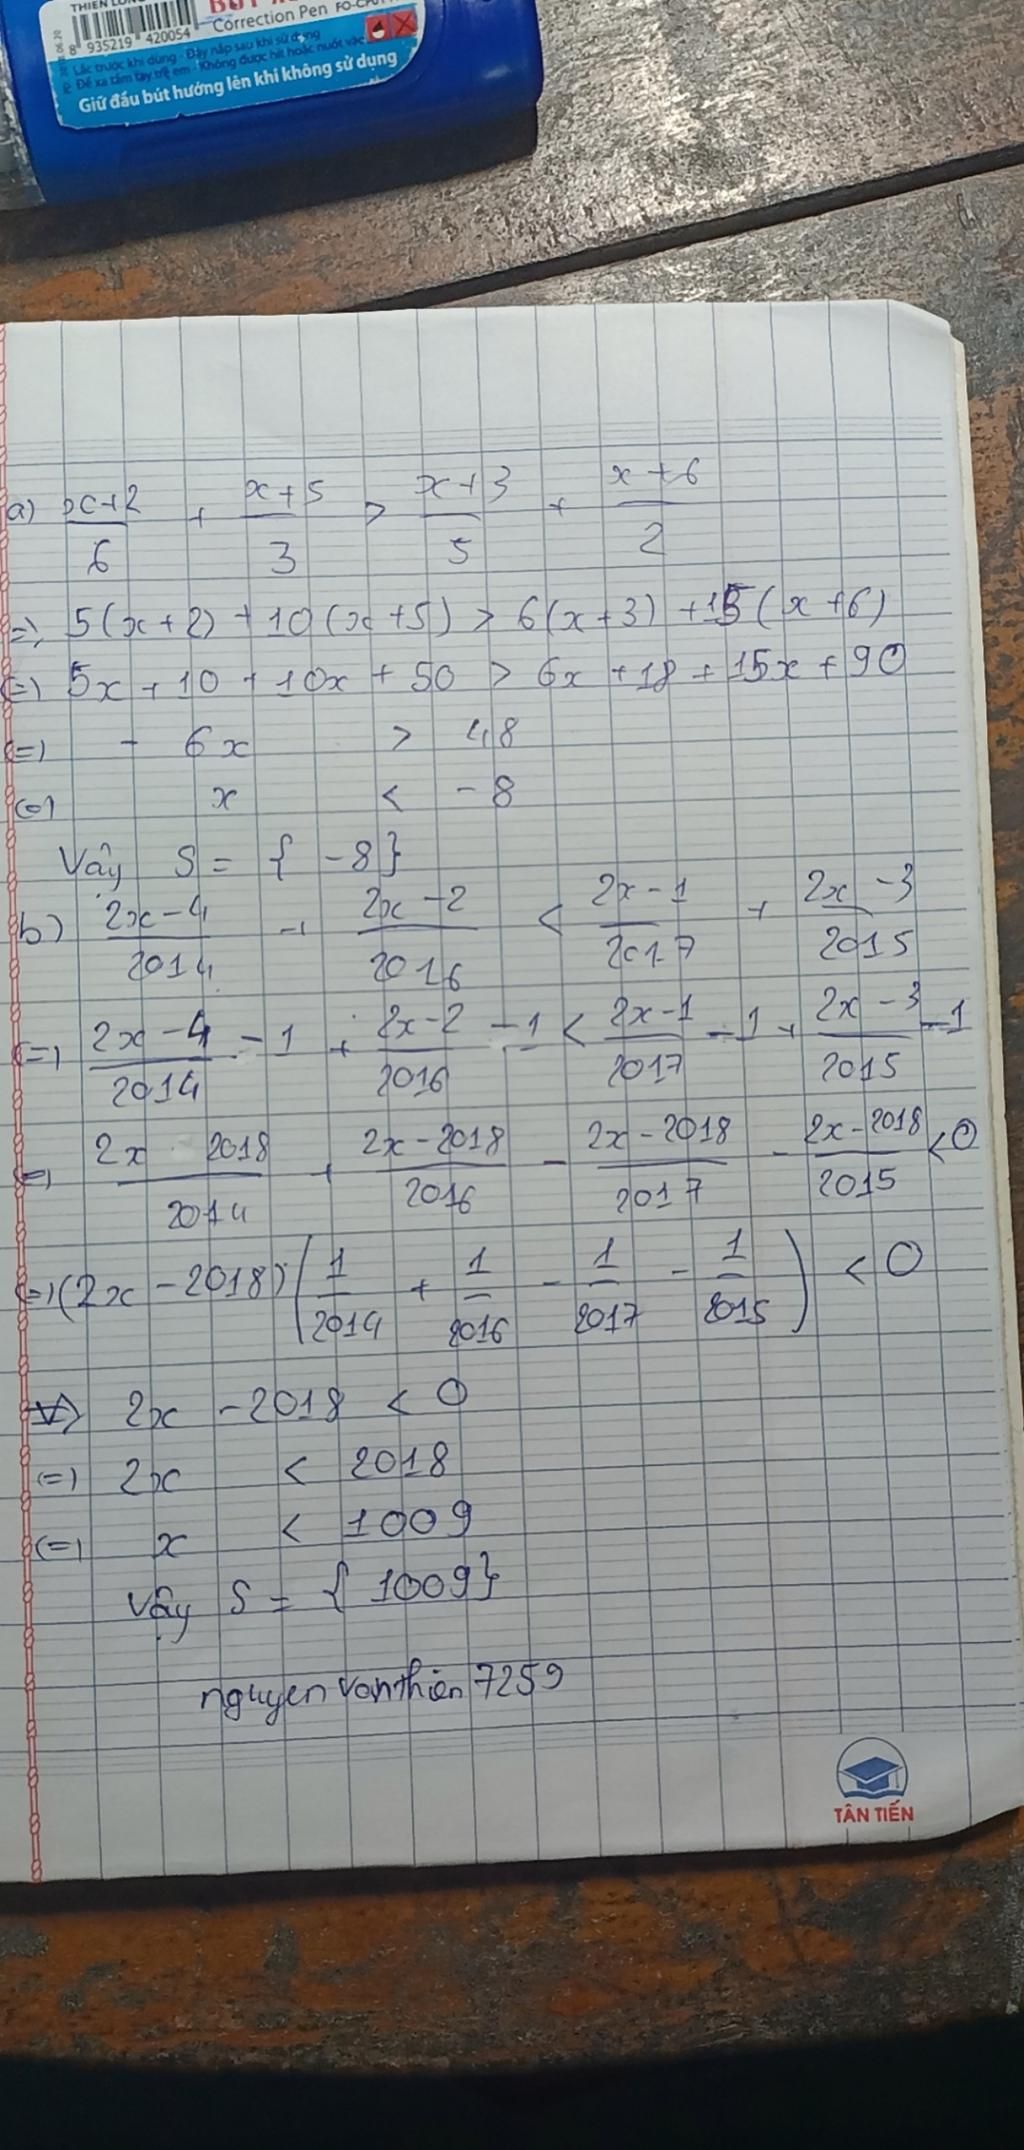 THIEN LONG
BÚT
Correction Pen FO-CP01
8 935219 420054
Lắc trước khi dùng - Đậy nắp sau khi sử dụng
Để xa tầm tay trẻ em - Không được hít hoặc nuốt
Giữ đầu bút hướng lên khi không sử dụng
a) x+2/6 + x+5/3 > x+3/5 + x+6/2
=> 5(x+2) + 10(x+5) > 6(x+3) + 15(x+6)
(=) 5x + 10 + 10x + 50 > 6x + 18 + 15x + 90
(=) - 6x > 48
(=) x < -8
Vây S = { -8}
b) 2x-4/2014 + 2x-2/2016 < 2x-1/2017 + 2x-3/2015
(=) 2x-4/2014 - 1 + 2x-2/2016 - 1 < 2x-1/2017 - 1 + 2x-3/2015 - 1
(=) 2x - 2018/2014 + 2x-2018/2016 - 2x-2018/2017 - 2x-2018/2015 < 0
(=) (2x - 2018) (1/2014 + 1/2016 - 1/2017 - 1/2015) < 0
2x - 2018 < 0
(=) 2x < 2018
(=) x < 1009
Vây S = { 1009}
nguyen vanthien 7259
TÂN TIẾN